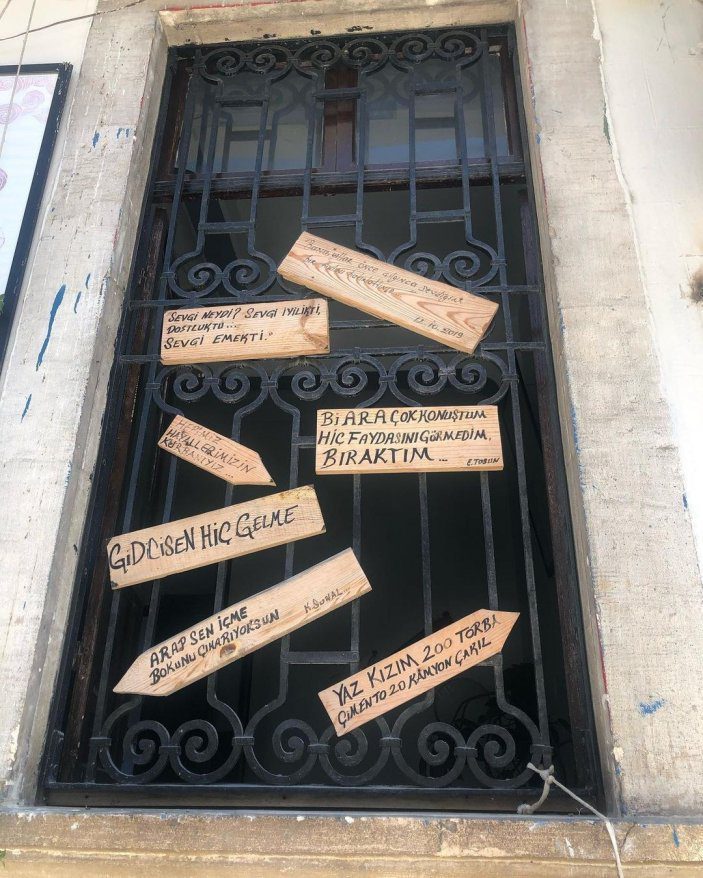 önce
sevdiğini
12.10.2019
SEVGİ NEYDİ? SEVGİ İYİLİKTİ,
DOSTLUKTU...
SEVGİ EMEKTİ."
Bİ ARA ÇOK KONUŞTUM
HİÇ FAYDASINI GÖRMEDİM,
BIRAKTIM...
E. TOSUN
HEPİMİZ
HAYALLERİMİZİN
KURBANIYIZ
GİDCİSEN HİÇ GELME
ARAP SEN İÇME
BOKUNU ÇIKARIYOKSUN
YAZ KIZIM 200 TORBA
ÇİMENTO 20 KAMYON ÇAKIL